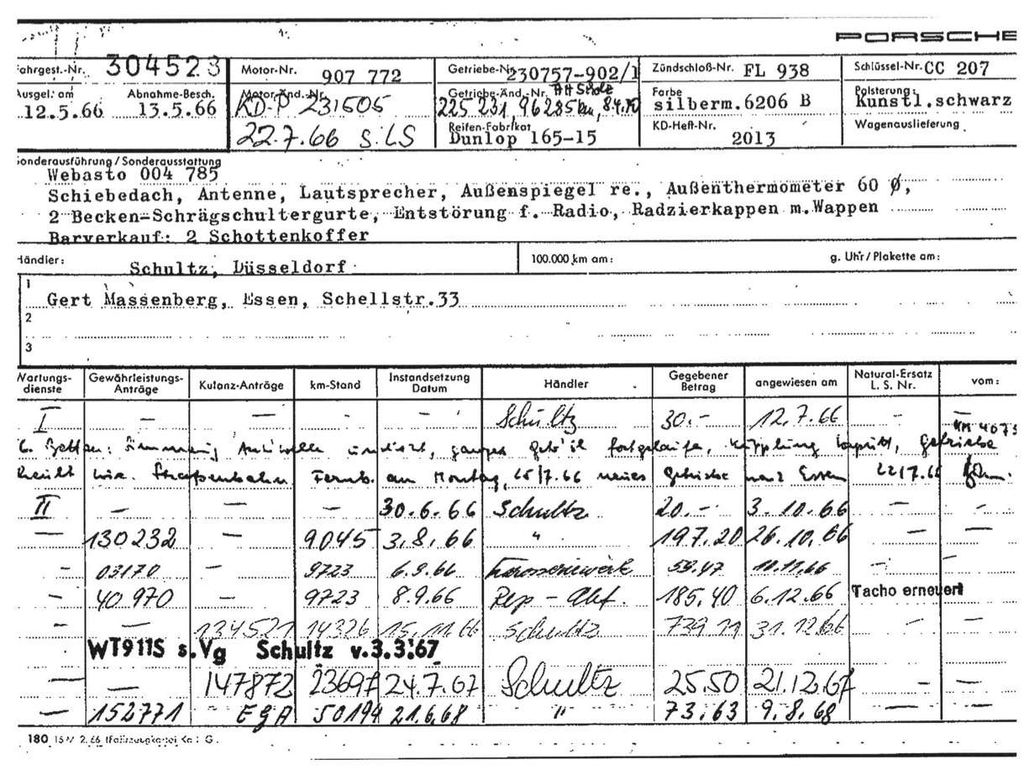 PORSCHE
Fahrgest.-Nr. 304523 Motor-Nr. 907 772 Getriebe-Nr. 230757-902/1 Zündschloß-Nr. FL 938 Schlüssel-Nr. CC 207
Ausgel. am 12.5.66 Abnahme-Besch. 13.5.66 Motor-Änd.-Nr. KD-P 231505 Getriebe-Änd.-Nr. 225 231, 96285 km, 8.4.70 Farbe silberm.6206 B Polsterung: Kunstl.schwarz
22.7.66 S.LS Reifen-Fabrikat Dunlop 165-15 KD-Heft-Nr. 2013 Wagenauslieferung
Sonderausführung/Sonderausstattung
Webasto 004 785
Schiebedach, Antenne, Lautsprecher, Außenspiegel re., Außenthermometer 60 Ø,
2 Becken-Schrägschultergurte, Entstörung f. Radio, Radzierkappen m.Wappen
Barverkauf: 2 Schottenkoffer
Händler: Schultz, Düsseldorf 100.000 km am: g. Uhr/Plakette am:
1 Gert Massenberg, Essen, Schellstr.33
2
3
Wartungsdienste Gewährleistungs-Anträge Kulanz-Anträge km-Stand Instandsetzung Datum Händler Gegebener Betrag angewiesen am Natural-Ersatz L. S. Nr. vom:
I – – – – Schultz 30.- 12.7.66 – –
km 4073
ganzes fortgelaufen, Kupplung kaputt, Getriebe
Straßenbahn am Montag, 25/7.66 neues Getriebe nach Essen 22/7.66
II – – – 30.6.66 Schultz 20.- 3.10.66 – –
– 130232 – 9045 3.8.66 " 197.20 26.10.66 – –
– 03170 – 9723 6.9.66 Karosseriewerk 59.47 10.11.66 – –
– 40 970 – 9723 8.9.66 Rep-Abt. 185.40 6.12.66 Tacho erneuert
– – 134521 14326 15.11.66 Schultz 739 31.12.66 – –
WT911S s.Vg Schultz v.3.3.67
– – 147872 23697 24.7.67 Schultz 25.50 21.12.67 – –
– 152771 EGA 50194 21.6.68 " 73.63 9.8.68 – –
180